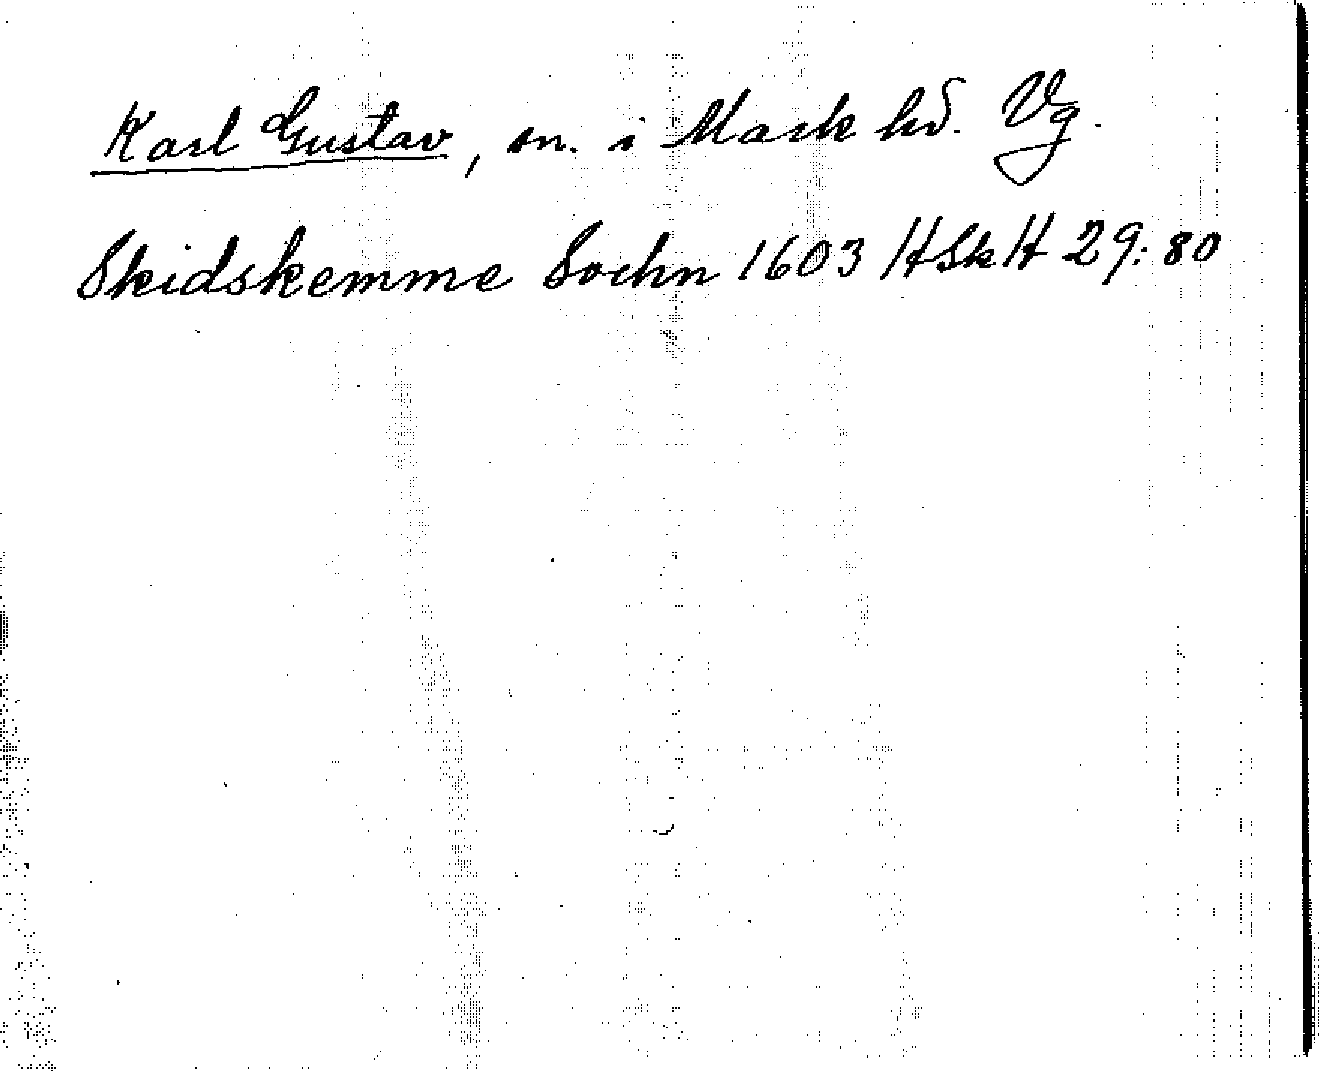 Karl Gustav, sn. i Mark hd. Vg.
Skidskemme Sochn 1603 HSkH 29:80